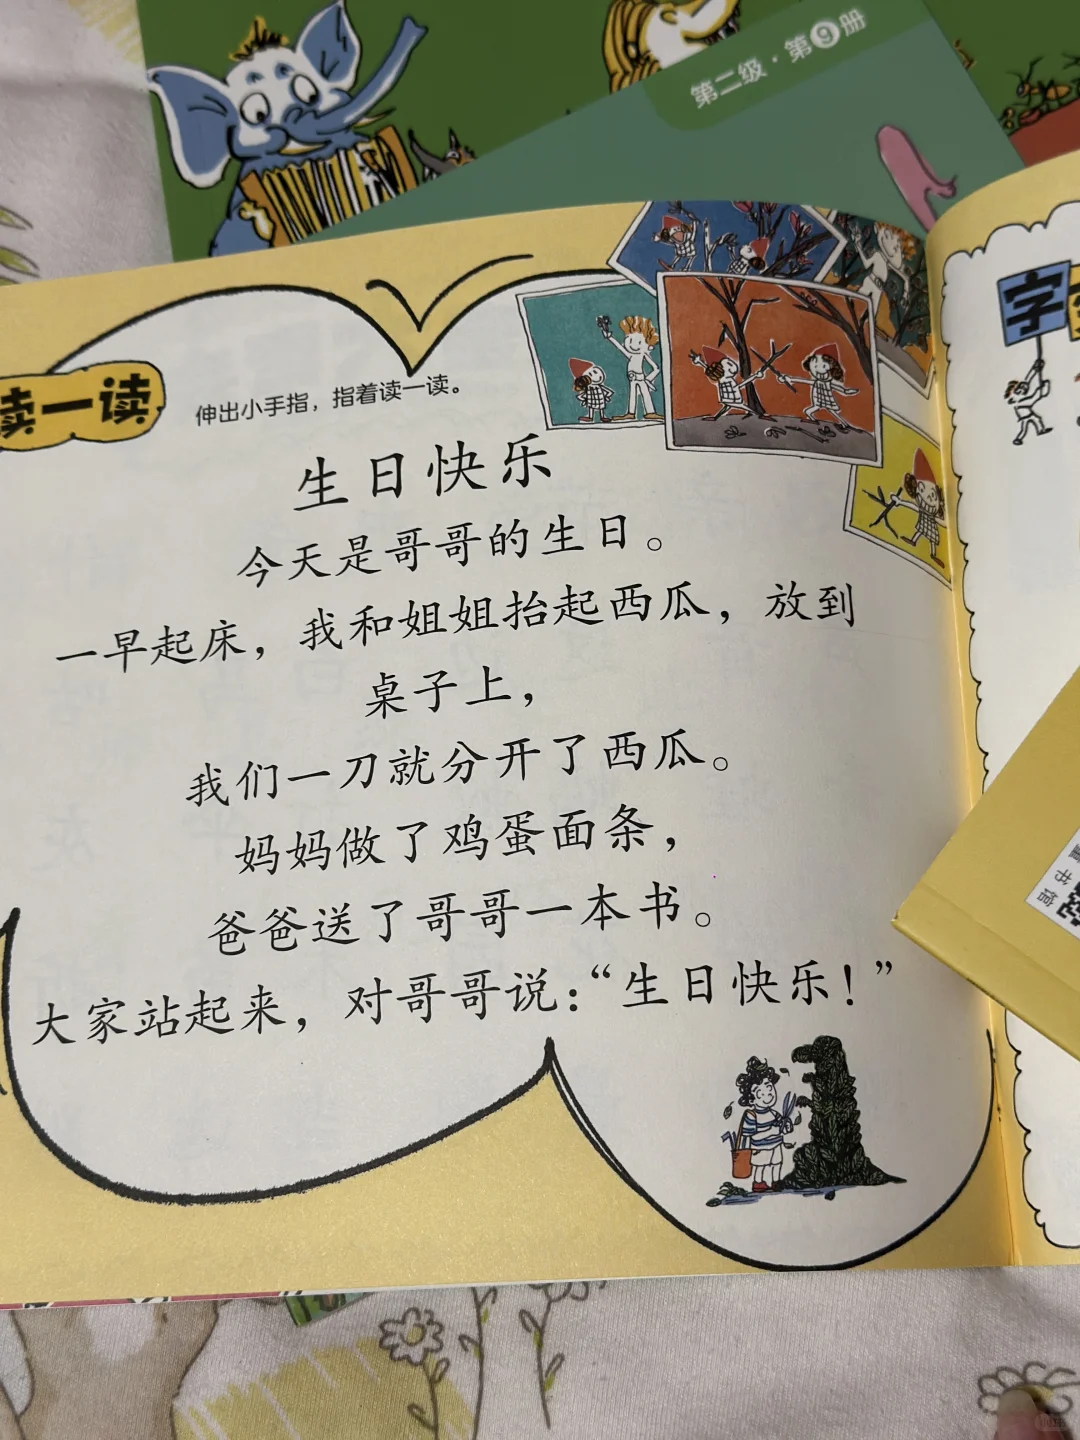 第二级·第9册
读一读
伸出小手指，指着读一读。
生日快乐
今天是哥哥的生日。
一早起床，我和姐姐抬起西瓜，放到
桌子上，
我们一刀就分开了西瓜。
妈妈做了鸡蛋面条，
爸爸送了哥哥一本书。
大家站起来，对哥哥说：“生日快乐！”
字
书馆